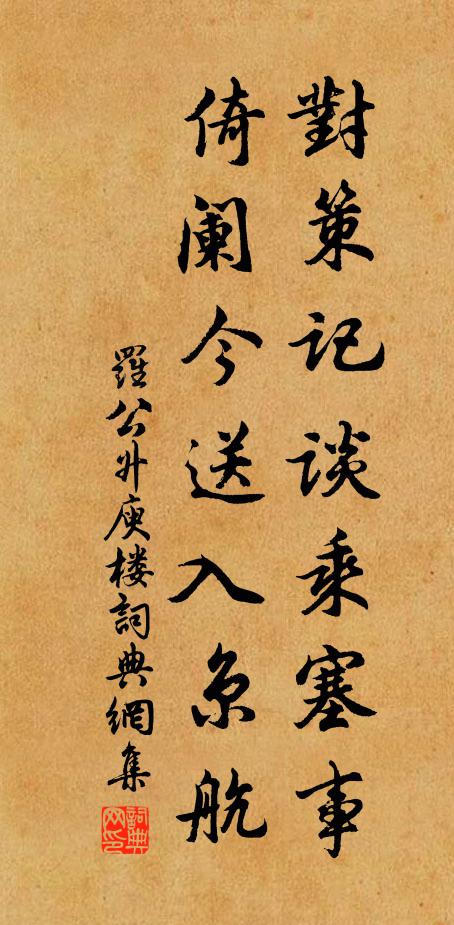 對策記談乘塞事
倚闌今送入京航
羅公升庾楼詞典網集
詞典網印